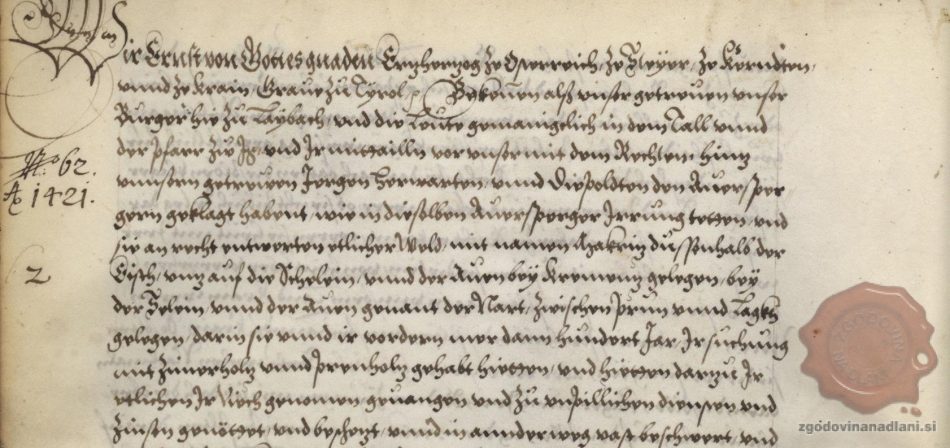 Wir Ernst von Gottes gnaden Ertzhertzog ze Österreich, ze Steyer, ze Kerndten,
vnnd ze Krain, Graue zu Tyrol Bekennen alß vnnser getreuen vnnser
Burger hie zu Laybach, vnd die Leute gemainigelich in dem Tall vnnd
No. 62.
der Pfarr zu Ig, vnd Ir mittailln vor vnnser mit dem Rechten, hintz
Ao 1421.
vnnsern getreuen Jorgen Herwarten, vnnd Diepoldten den Auersper
gern geklagt habent, wie in dieselben Auersperger Irrung tetten, vnd
sie an recht entwerten etlicher Weld, mit namen enhalb der
2
Eisch, vntz auf die Schelein, vnnd der Auen bey gelegen, bey
der Zelein, vnnd der Auen genant der Wart, zwischen Prun vnnd Lagkh
gelegen, darin sie vnnd ir vordern mer dann hundert Jar, Ir suchung
mit Zimerholtz vnnd Prennholtz gehabt hietten, vnd hietten dartzu Ir
etlichen Ir Viech genomen, geuangen vnd zu vnpillichen diensten vnd
Zinsen genöttet, vnd beschetzt, vnnd in annder weg vast beschwert, vnd
ZGODOVINA
zgodovinanadlani.si